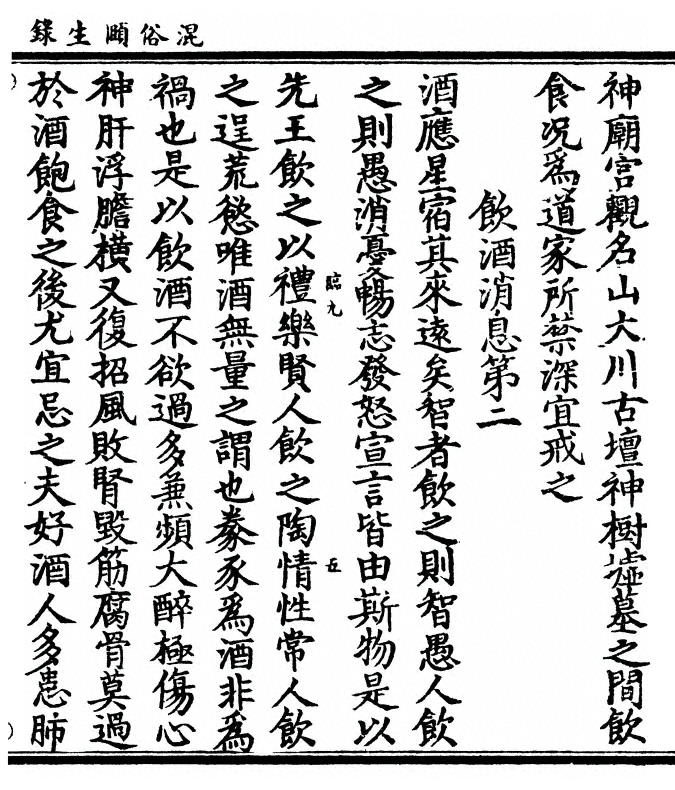 混俗頤生錄
神廟宮觀名山大川古壇神樹墟墓之間飲
食况爲道家所禁深宜戒之
飲酒消息第二
酒應星宿其來遠矣智者飲之則智愚人飲
之則愚消憂暢志發怒宣言皆由斯物是以
先王飲之以禮樂賢人飲之陶情性常人飲
臨九
五
之逞荒慾唯酒無量之謂也豢豕爲酒非爲
禍也是以飲酒不欲過多兼頻大醉極傷心
神肝浮膽橫又復招風敗腎毀筋腐骨莫過
於酒飽食之後尤宜忌之夫好酒人多患肺